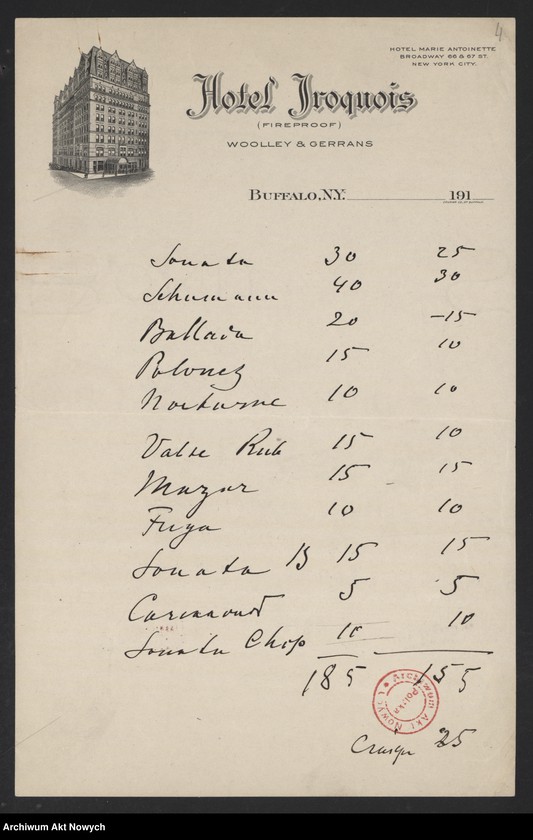 4
HOTEL MARIE ANTOINETTE
BROADWAY 66 & 67 ST.
NEW YORK CITY.
Hotel Iroquois
(FIREPROOF)
WOOLLEY & GERRANS
BUFFALO, N.Y. 191
Sonata 30 25
Schumann 40 30
Ballada 20 -15
Polonez 15 10
Nocturne 10 10
Valse Rub 15 10
Mazur 15 15
Fuga 10 10
Sonata B 15 15
5 5
Sonata Chop 10 10
185 155
Archiwum Akt Nowych
25
Archiwum Akt Nowych